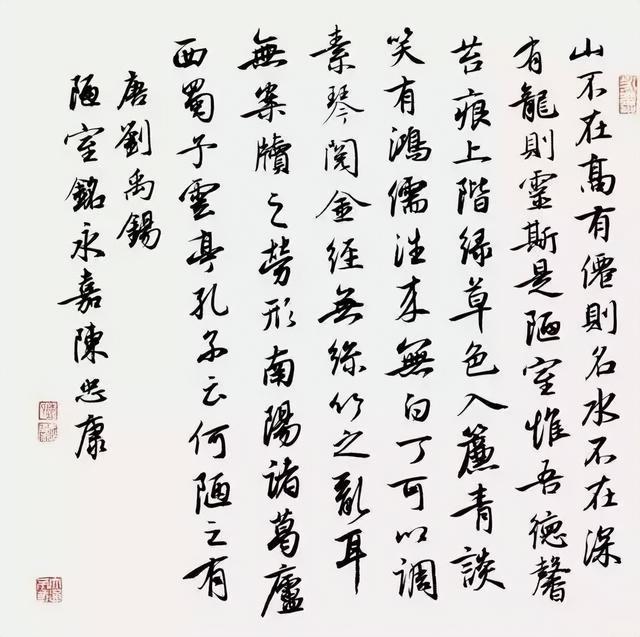 山不在高有僊則名水不在深
有龍則靈斯是陋室惟吾德馨
苔痕上階緑草色入簾青談
笑有鴻儒往来無白丁可以調
素琴閱金經無絲竹之亂耳
無案牘之勞形南陽諸葛廬
西蜀子雲亭孔子云何陋之有
唐劉禹錫
陋室銘永嘉陳忠康